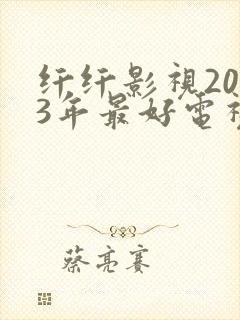 纤纤影視20
3年最好電視
蔡亮賽